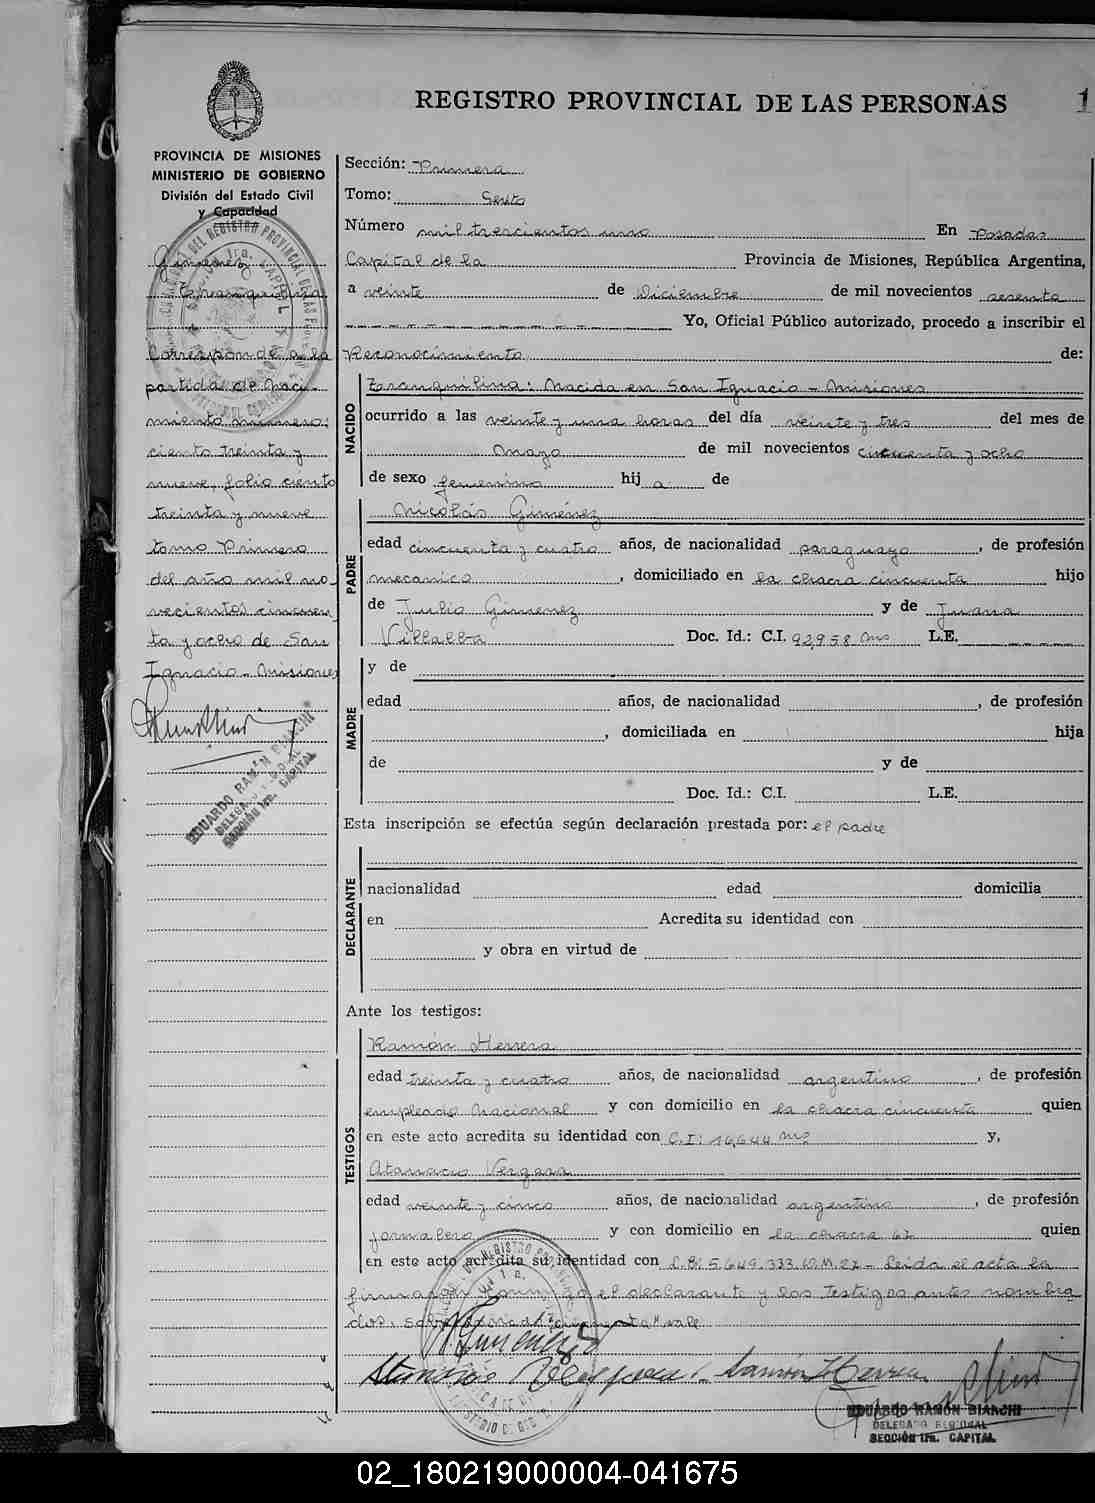 REGISTRO PROVINCIAL DE LAS PERSONAS 1
PROVINCIA DE MISIONES
MINISTERIO DE GOBIERNO
División del Estado Civil
y Capacidad
Gimenez
Tranquilina
Corresponde a la
partida de naci-
miento número:
ciento treinta y
nueve, folio ciento
treinta y nueve
tomo Primero
del año mil no-
vecientos cincuen
ta y ocho de San
Ignacio - Misiones
EDUARDO RAMÓN BIANCHI
DELEGADO REGIONAL
SECCIÓN 1ra. CAPITAL
Sección: Primera
Tomo: Sexto
Número mil trescientos uno En Posadas
Capital de la Provincia de Misiones, República Argentina,
a veinte de Diciembre de mil novecientos sesenta
Yo, Oficial Público autorizado, procedo a inscribir el
Reconocimiento de:
NACIDO
Tranquilina: Nacida en San Ignacio - Misiones
ocurrido a las veinte y una horas del día veinte y tres del mes de
Mayo de mil novecientos cincuenta y ocho
de sexo femenino hij a de
PADRE
Nicolás Giménez
edad cincuenta y cuatro años, de nacionalidad paraguayo, de profesión
mecanico, domiciliado en la chacra cincuenta hijo
de Julio Gimenez y de Juana
Villalba Doc. Id.: C.I. 92,958 Mns L.E.
MADRE
y de
edad años, de nacionalidad, de profesión
, domiciliada en hija
de y de
Doc. Id.: C.I. L.E.
Esta inscripción se efectúa según declaración prestada por: el padre
DECLARANTE
nacionalidad edad domicilia
en Acredita su identidad con
y obra en virtud de
Ante los testigos:
TESTIGOS
Ramón Herrera
edad treinta y cuatro años, de nacionalidad argentino, de profesión
empleado Nacional y con domicilio en la chacra cincuenta quien
en este acto acredita su identidad con C.I: 16,644 Mns y,
Atanacio Vergara
edad veinte y cinco años, de nacionalidad argentino, de profesión
jornalero y con domicilio en la chacra 67 quien
en este acto acredita su identidad con L.E. 5.649.333 D.M. 27 - Leída el acta la
firmaron conmigo el declarante y los testigos antes nombra
dos. vale
N Gimenez
Ramón Herrera
EDUARDO RAMÓN BIANCHI
DELEGADO REGIONAL
SECCIÓN 1ra. CAPITAL
02_180219000004-041675